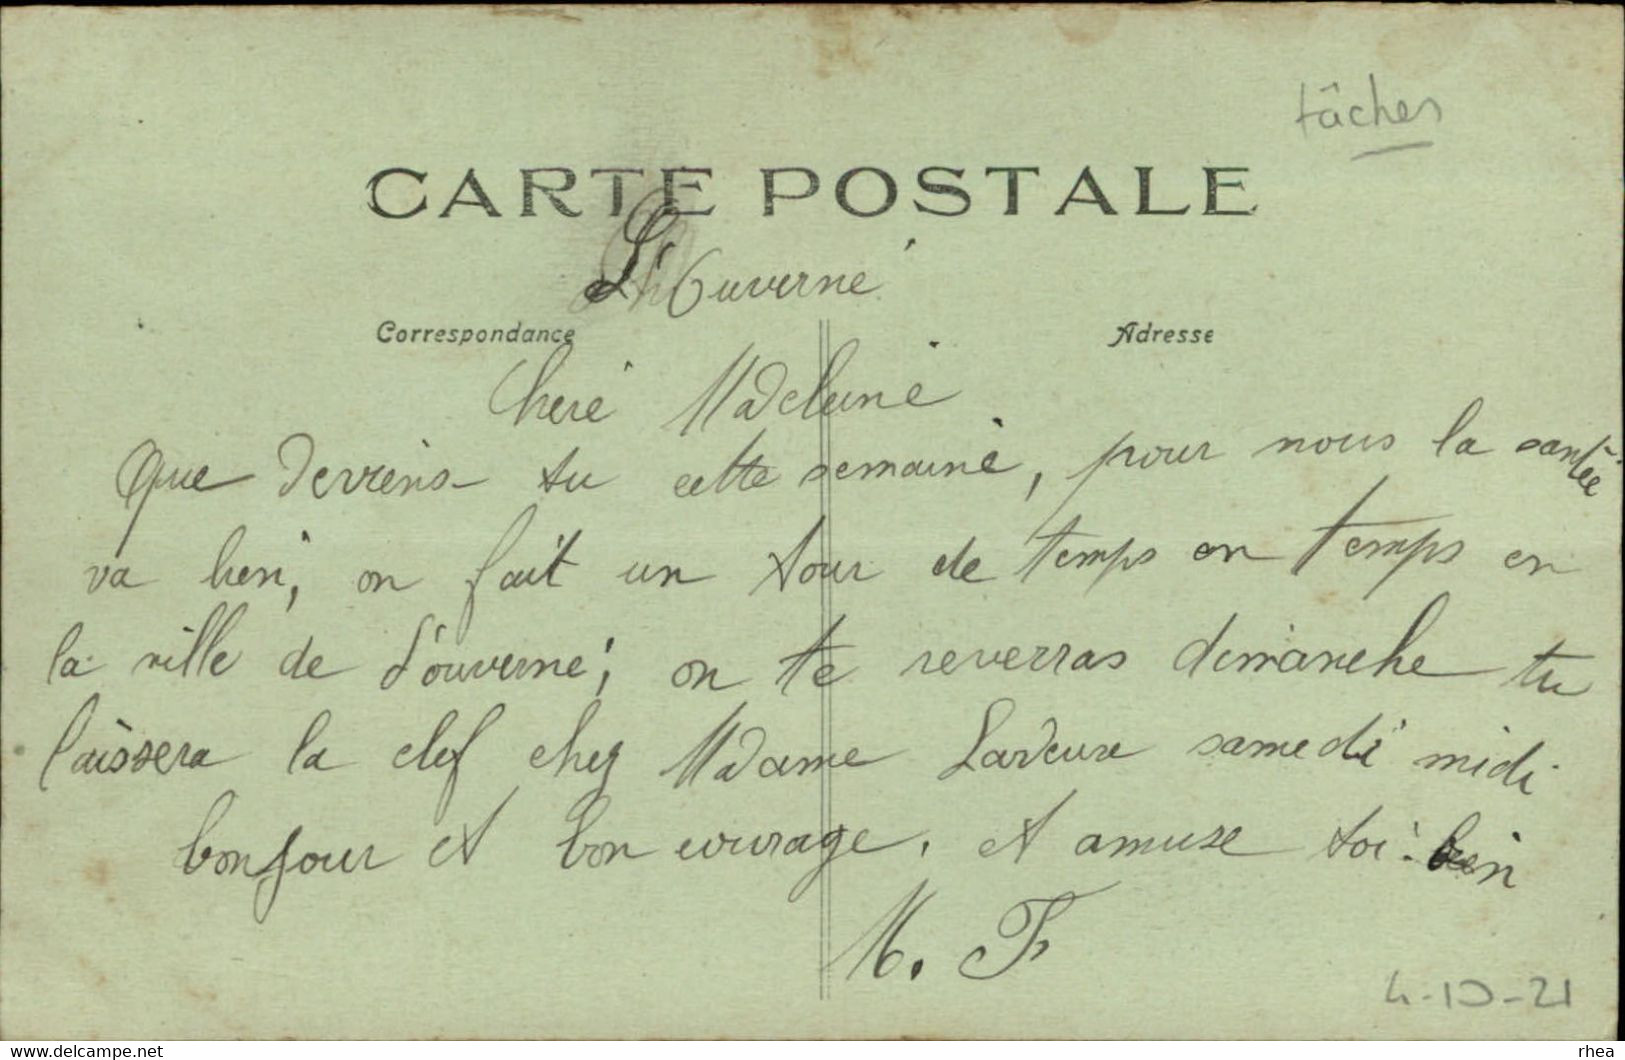 tâches
CARTE POSTALE
Ouverné
Correspondance
Adresse
Cheré Madeleine
Que deviens tu cette semaine, pour nous la santée
va bien, on fait un tour de temps en temps en
la ville de d'ouverne; on te reverras dimanche tu
laissera la clef chez Madame Ladeuxe samedi midi
bonjour et bon courage, et amuse toi bien
M. F
4-10-21
rhea